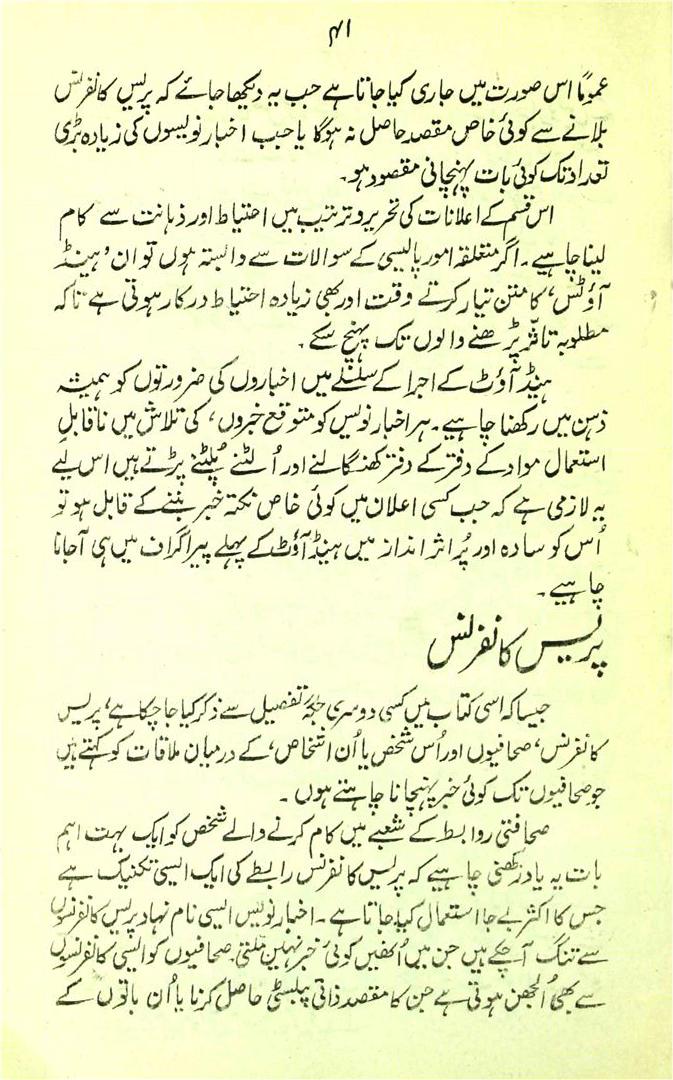 ۴۱
عموماً اس صورت میں جاری کیا جاتا ہے جب یہ دیکھا جائے کہ پریس کانفرنس
بلانے سے کوئی خاص مقصد حاصل نہ ہوگا یا جب اخبار نویسوں کی زیادہ بڑی
تعداد تک کوئی بات پہنچانی مقصود ہو۔
اس قسم کے اعلانات کی تحریر و ترتیب میں احتیاط اور ذہانت سے کام
لینا چاہیے۔ اگر متعلقہ امور پالیسی کے سوالات سے وابستہ ہوں تو ان ’ہینڈ
آؤٹس‘ کا متن تیار کرتے وقت اور بھی زیادہ احتیاط درکار ہوتی ہے تاکہ
مطلوبہ تاثّر پڑھنے والوں تک پہنچ سکے۔
ہینڈ آؤٹ کے اجرا کے سلسلے میں اخباروں کی ضرورتوں کو ہمیشہ
ذہن میں رکھنا چاہیے۔ ہر اخبار نویس کو متوقع خبروں، کی تلاش میں ناقابلِ
استعمال مواد کے دفتر کے دفتر کھنگالنے اور اُلٹنے پُلٹنے پڑتے ہیں اس لیے
یہ لازمی ہے کہ جب کسی اعلان میں کوئی خاص نکتہ خبر بننے کے قابل ہو تو
اُس کو سادہ اور پُر اثر انداز میں ہینڈ آؤٹ کے پہلے پیراگراف میں ہی آجانا
چاہیے۔
پریس کانفرنس
جیسا کہ اسی کتاب میں کسی دوسری جگہ تفصیل سے ذکر کیا جا چکا ہے، پریس
کانفرنس، صحافیوں اور اُس شخص یا اُن اشخاص، کے درمیان ملاقات کو کہتے ہیں
جو صحافیوں تک کوئی خبر پہنچانا چاہتے ہوں۔
صحافتی روابط کے شعبے میں کام کرنے والے شخص کو ایک بہت اہم
بات یہ یاد رکھنی چاہیے کہ پریس کانفرنس رابطے کی ایک ایسی تکنیک ہے
جس کا اکثر بے جا استعمال کیا جاتا ہے۔ اخبار نویس ایسی نام نہاد پریس کانفرنسوں
سے تنگ آ چکے ہیں جن میں اُنھیں کوئی خبر نہیں ملتی۔ صحافیوں کو ایسی کانفرنسوں
سے بھی اُلجھن ہوتی ہے جن کا مقصد ذاتی پبلسٹی حاصل کرنا یا اُن باتوں کے